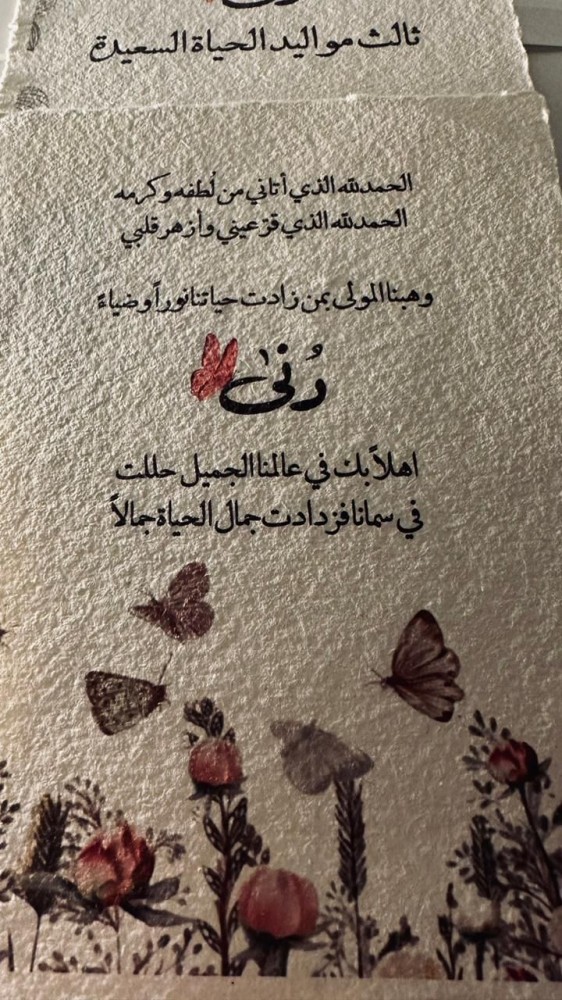 ثالث مواليد الحياة السعيدة
الحمدلله الذي أتاني من لُطفه وكرمه
الحمدلله الذي قرّ عيني وأزهر قلبي
وهبنا المولى بمن زادت حياتنا نوراً وضياءً
دُنىٰ
اهلاً بك في عالمنا الجميل حللت
في سمانا فزدادت جمال الحياة جمالاً